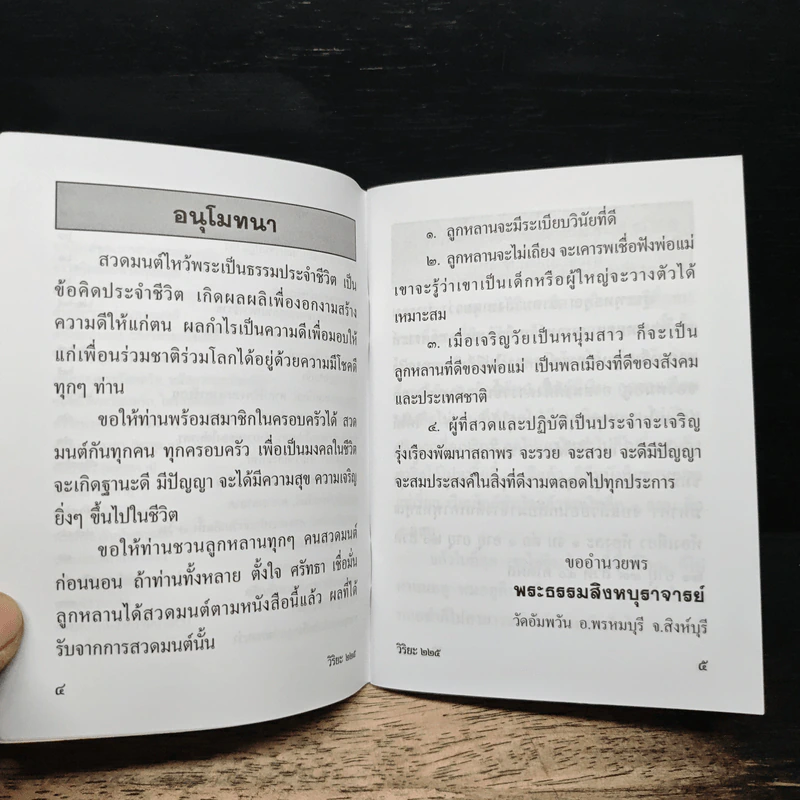 อนุโมทนา
สวดมนต์ไหว้พระเป็นธรรมประจำชีวิต เป็น
ข้อคิดประจำชีวิต เกิดผลผลิเพื่องอกงามสร้าง
ความดีให้แก่ตน ผลกำไรเป็นความดีเพื่อมอบให้
แก่เพื่อนร่วมชาติร่วมโลกได้อยู่ด้วยความมีโชคดี
ทุกๆ ท่าน
ขอให้ท่านพร้อมสมาชิกในครอบครัวได้ สวด
มนต์กันทุกคน ทุกครอบครัว เพื่อเป็นมงคลในชีวิต
จะเกิดฐานะดี มีปัญญา จะได้มีความสุข ความเจริญ
ยิ่งๆ ขึ้นไปในชีวิต
ขอให้ท่านชวนลูกหลานทุกๆ คนสวดมนต์
ก่อนนอน ถ้าท่านทั้งหลาย ตั้งใจ ศรัทธา เชื่อมั่น
ลูกหลานได้สวดมนต์ตามหนังสือนี้แล้ว ผลที่ได้
รับจากการสวดมนต์นั้น
วิริยะ ๒๒๕
๔
๑. ลูกหลานจะมีระเบียบวินัยที่ดี
๒. ลูกหลานจะไม่เถียง จะเคารพเชื่อฟังพ่อแม่
เขาจะรู้ว่าเขาเป็นเด็กหรือผู้ใหญ่จะวางตัวได้
เหมาะสม
๓. เมื่อเจริญวัยเป็นหนุ่มสาว ก็จะเป็น
ลูกหลานที่ดีของพ่อแม่ เป็นพลเมืองที่ดีของสังคม
และประเทศชาติ
๔. ผู้ที่สวดและปฏิบัติเป็นประจำจะเจริญ
รุ่งเรืองพัฒนาสถาพร จะรวย จะสวย จะดีมีปัญญา
จะสมประสงค์ในสิ่งที่ดีงามตลอดไปทุกประการ
ขออำนวยพร
พระธรรมสิงหบุราจารย์
วัดอัมพวัน อ.พรหมบุรี จ.สิงห์บุรี
วิริยะ ๒๒๕
๕